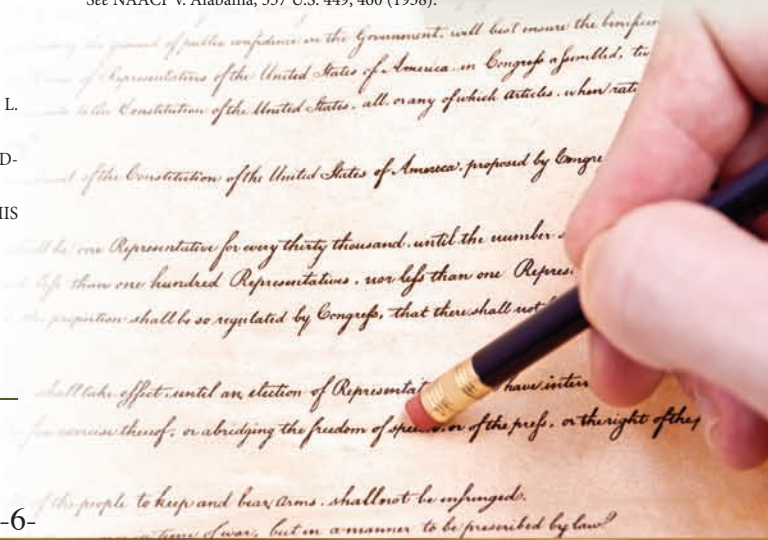 See NAACP v. Alabama, 357 U.S. 449, 460 (1958).
ground of public confidence in the Government, will best ensure the benificen
of Representatives of the United States of America in Congress assembled, tw
to the Constitution of the United States, all or any of which articles, when rati
L.
D-
of the Constitution of the United States of America, proposed by Congre
IIS
shall be one Representative for every thirty thousand, until the number
less than one hundred Representatives, nor less than one Repres
the proportion shall be so regulated by Congress, that there shall not
shall take effect, until an election of Representat have inter
exercise thereof; or abridging the freedom of speech, or of the press, or the right of the
of the people to keep and bear arms, shall not be infringed.
in time of war, but in a manner to be prescribed by law
-6-